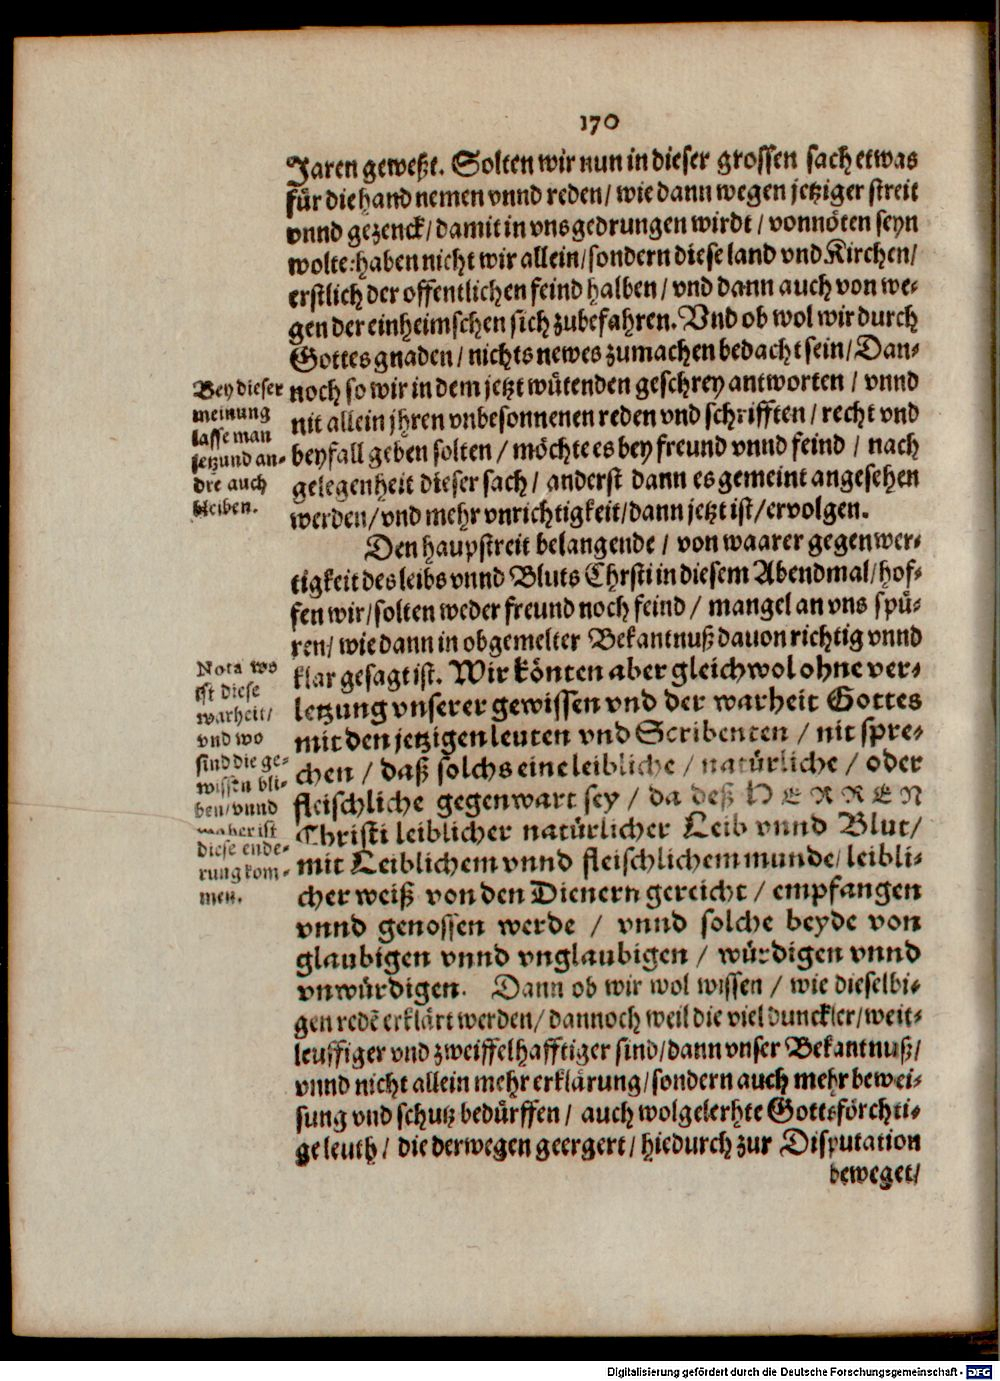 170
Jaren geweßt. Solten wir nun in dieser grossen sach etwas
für die hand nemen vnnd reden/ wie dann wegen jetziger streit
vnnd gezenck/ damit in vns gedrungen wirdt/ vonnöten seyn
wolte: haben nicht wir allein/ sondern diese land vnd Kirchen/
erstlich der offentlichen feind halben/ vnd dann auch von we-
gen der einheimschen sich zubefahren. Vnd ob wol wir durch
Gottes gnaden/ nichts newes zumachen bedacht sein/ Dan-
noch so wir in dem jetzt wütenden geschrey antworten/ vnnd
nit allein jhren vnbesonnenen reden vnd schrifften/ recht vnd
beyfall geben solten/ möchte es bey freund vnnd feind/ nach
gelegenheit dieser sach/ anderst dann es gemeint angesehen
werden/ vnd mehr vnrichtigkeit/ dann jetzt ist/ ervolgen.
Bey dieser
meinung
lasse man
jetzund an-
dre auch
bleiben.
Den haupstreit belangende/ von waarer gegenwer-
tigkeit des leibs vnnd Bluts Chrsti in diesem Abendmal/ hof-
fen wir/ solten weder freund noch feind/ mangel an vns spü-
ren/ wie dann in obgemelter Bekantnuß dauon richtig vnnd
klar gesagt ist. Wir könten aber gleichwol ohne ver-
letzung vnserer gewissen vnd der warheit Gottes
mit den jetzigen leuten vnd Scribenten/ nit spre-
chen/ daß solchs eine leibliche/ natürliche/ oder
fleischliche gegenwart sey/ da deß HERREN
Christi leiblicher natürlicher Leib vnnd Blut/
mit Leiblichem vnnd fleischlichem munde/ leibli-
cher weiß von den Dienern gereicht/ empfangen
vnnd genossen werde/ vnnd solche beyde von
glaubigen vnnd vnglaubigen/ würdigen vnnd
vnwürdigen. Dann ob wir wol wissen/ wie dieselbi-
gen redē erklärt werden/ dannoch weil die viel dunckler/ weit-
leuffiger vnd zweiffelhafftiger sind/ dann vnser Bekantnuß/
vnnd nicht allein mehr erklärung/ sondern auch mehr bewei-
sung vnd schutz bedürffen/ auch wolgelerhte Gottsförchti-
ge leuth/ die derwegen geergert/ hiedurch zur Disputation
beweget/
Nota wo
ist diese
warheit/
vnd wo
sind die ge-
wissen bli-
ben/ vnnd
waher ist
diese ende-
rung kom-
men.
Digitalisierung gefördert durch die Deutsche Forschungsgemeinschaft - DFG